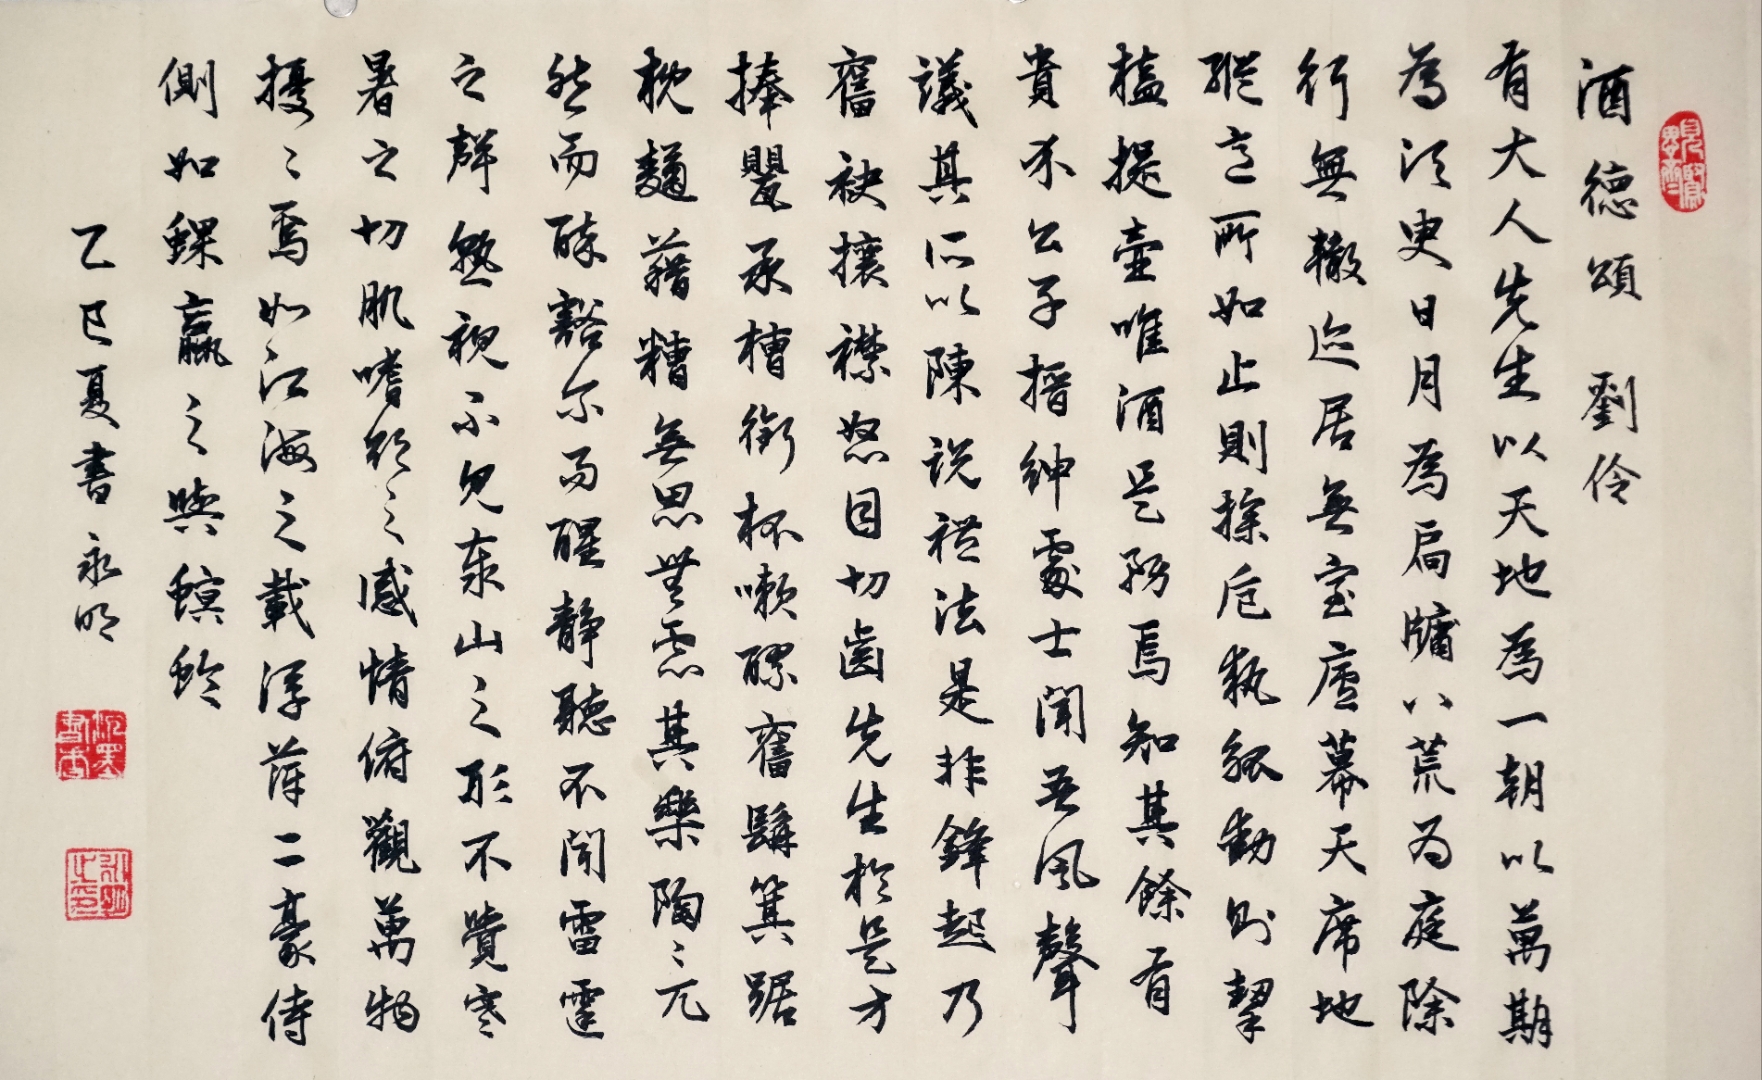 酒德頌 劉伶
有大人先生以天地為一朝以萬期
為須臾日月為扃牖八荒為庭除
行無轍迹居無室廬幕天席地
縱意所如止則操卮執觚動則挈
榼提壺唯酒是務焉知其餘有
貴介公子搢紳處士聞吾風聲
議其所以陳說禮法是非鋒起乃
奮袂攘襟怒目切齒先生於是方
捧甖承槽銜杯嗽醪奮髯箕踞
枕麯藉糟無思無慮其樂陶〻兀
然而醉豁尔而醒靜聽不聞雷霆
之聲熟視不見泰山之形不覺寒
暑之切肌嗜欲之感情俯觀萬物
擾〻焉如江海之載浮萍二豪侍
側如蜾蠃之與螟蛉
乙巳夏書永明